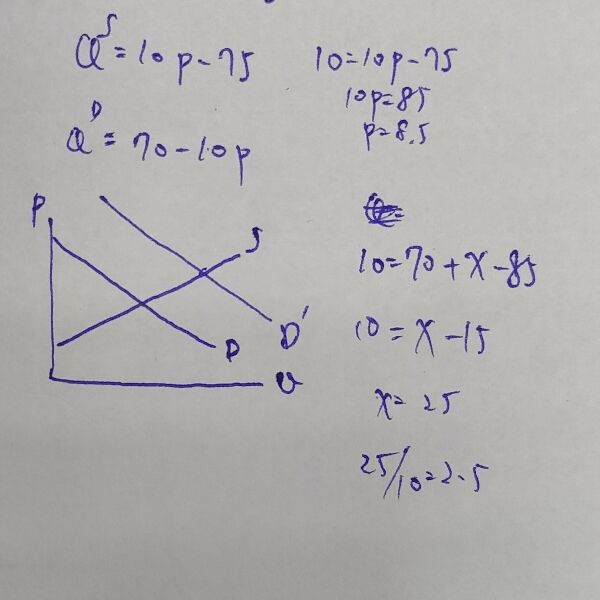 Q^S = 10p - 75
Q^D = 70 - 10p
P
S
D
D'
Q
10 = 10p - 75
10p = 85
p = 8.5
10 = 70 + x - 85
10 = x - 15
x = 25
25/10 = 2.5